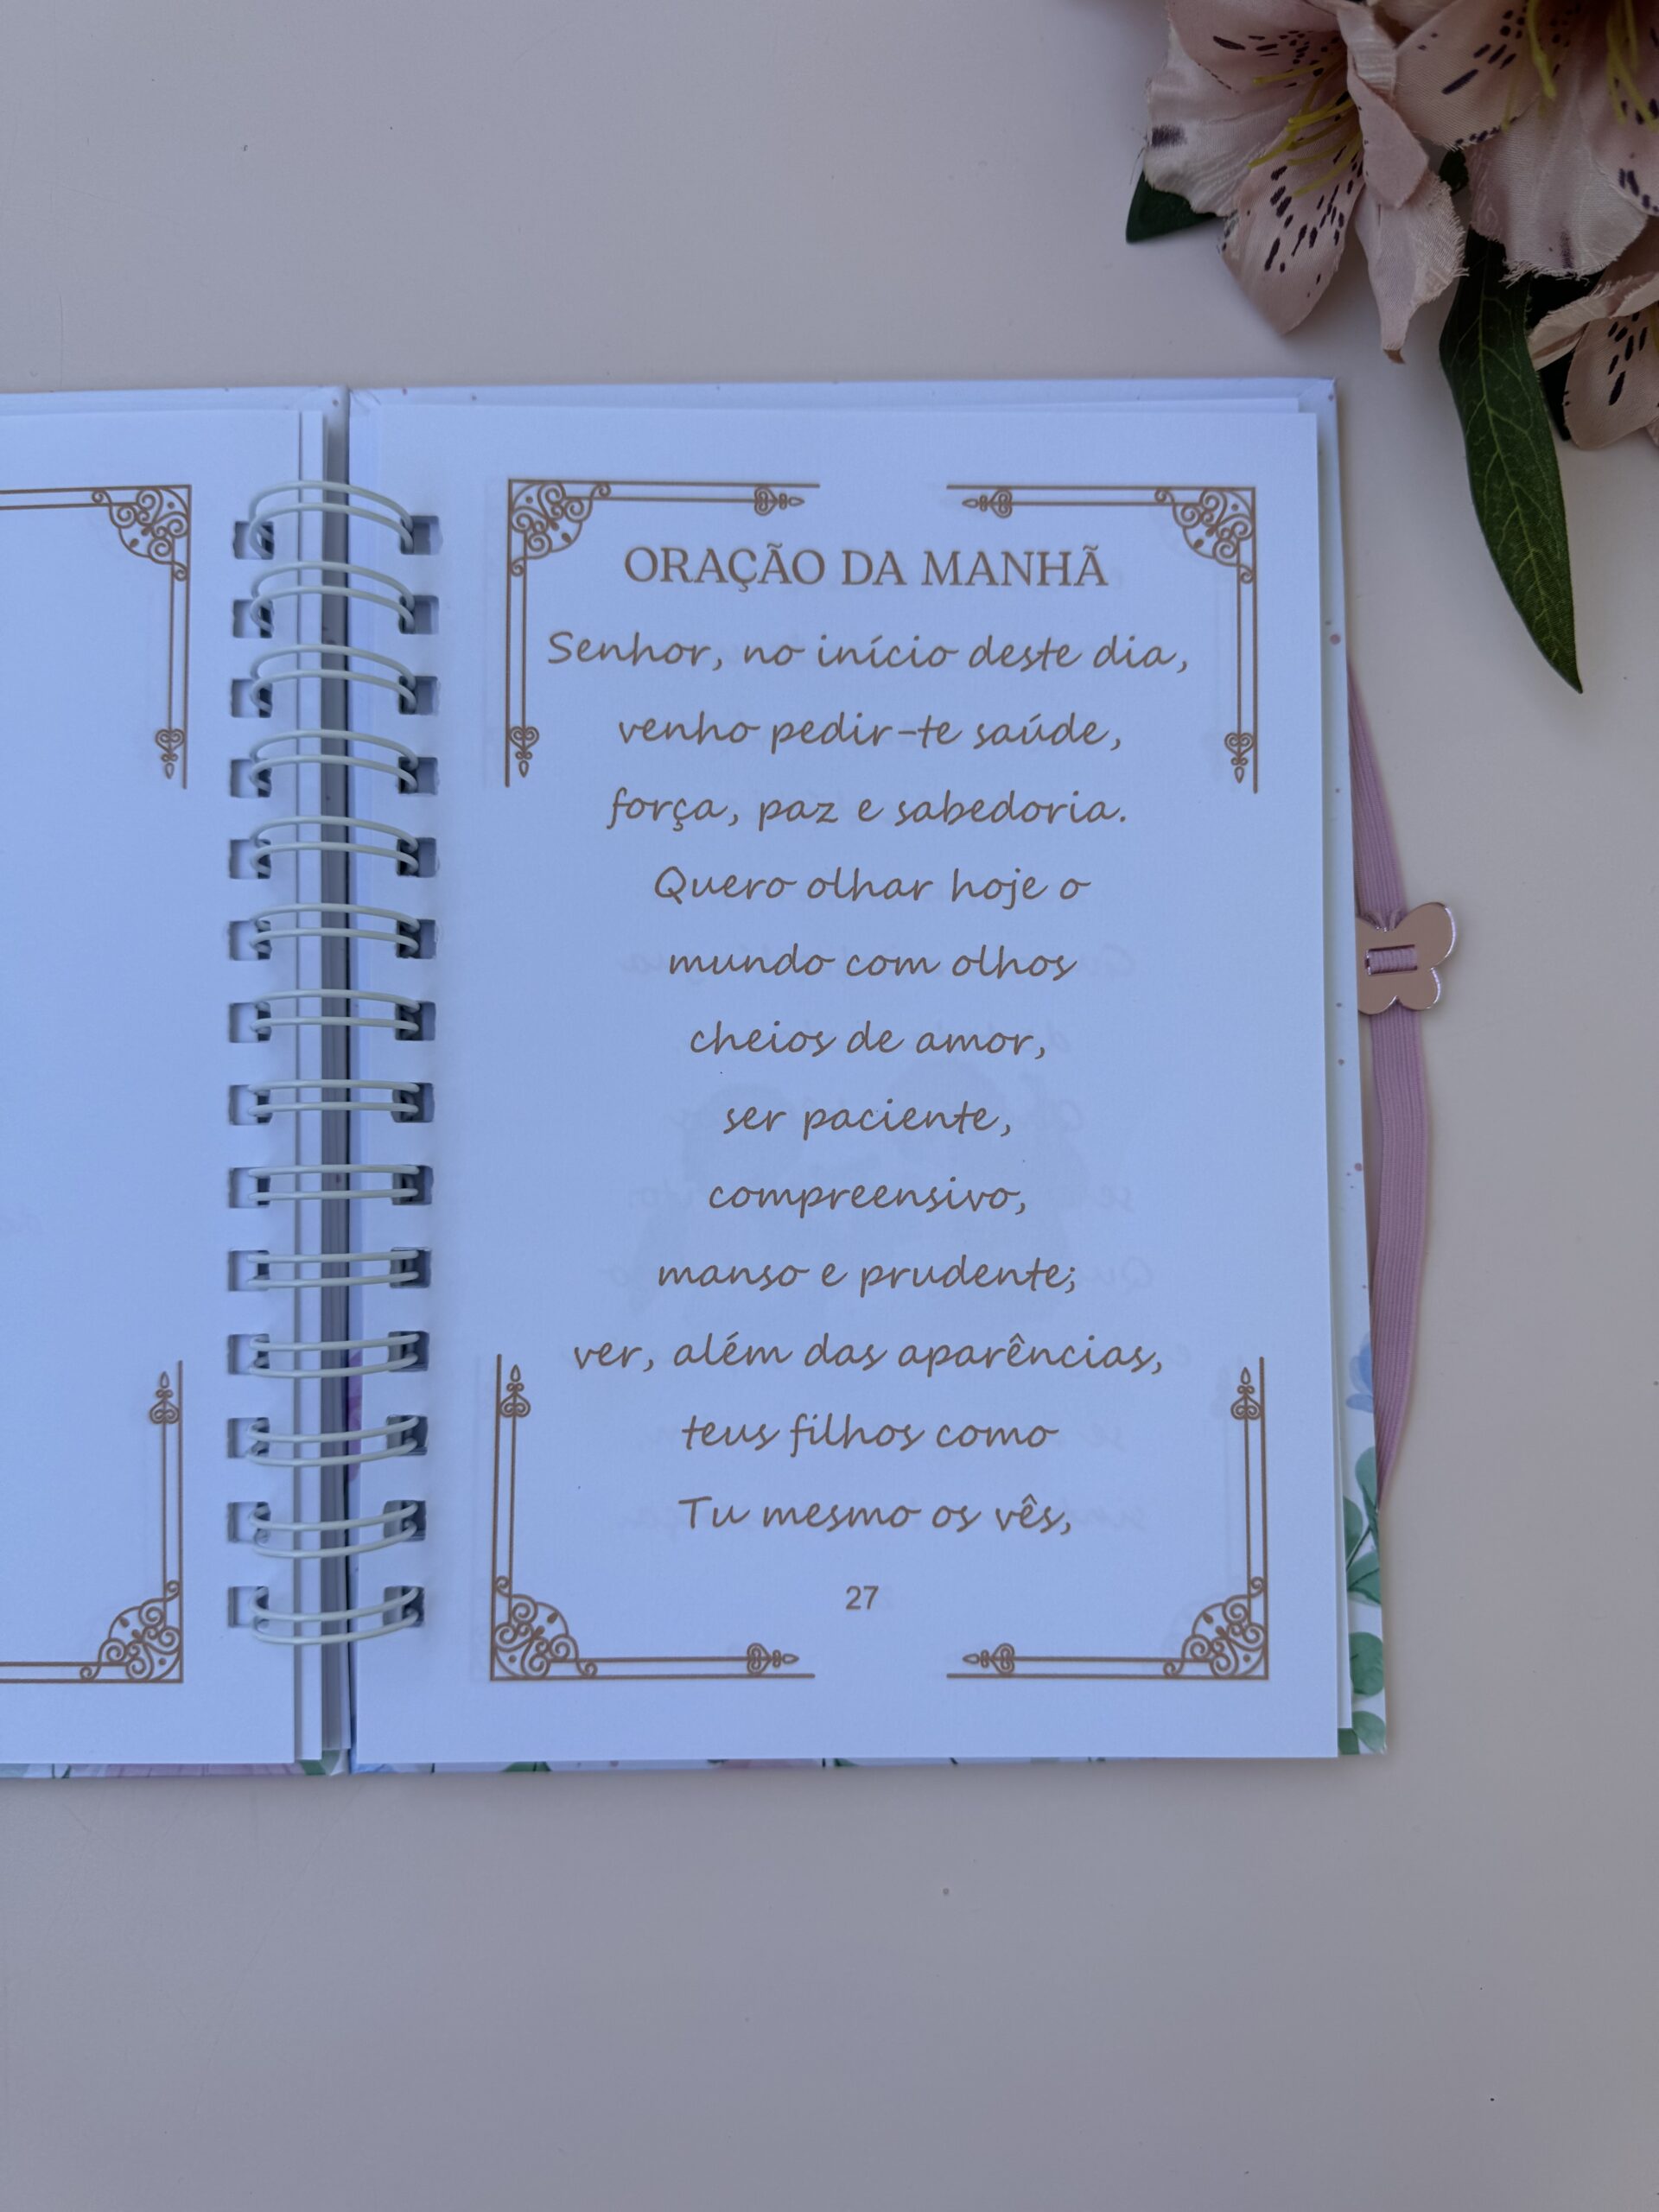 ORAÇÃO DA MANHÃ
Senhor, no início deste dia,
venho pedir-te saúde,
força, paz e sabedoria.
Quero olhar hoje o
mundo com olhos
cheios de amor,
ser paciente,
compreensivo,
manso e prudente;
ver, além das aparências,
teus filhos como
Tu mesmo os vês,
27